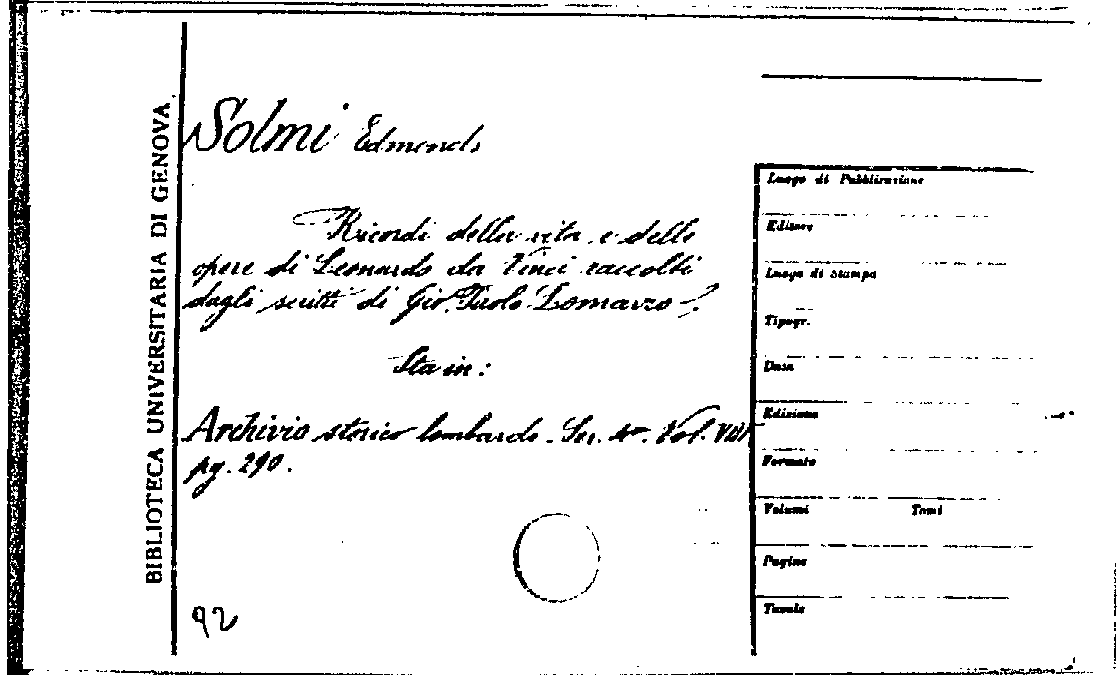 BIBLIOTECA UNIVERSITARIA DI GENOVA
Solmi Edmondo
Ricordi della vita e delle
opere di Leonardo da Vinci raccolti
dagli scritti di Gio. Paolo Lomazzo
Sta in:
Archivio storico lombardo. Ser. 4ª. Vol. VIII
pg. 290.
92
Luogo di Pubblicazione
Editore
Luogo di Stampa
Tipogr.
Data
Edizione
Formato
Volumi Tomi
Pagine
Tavole